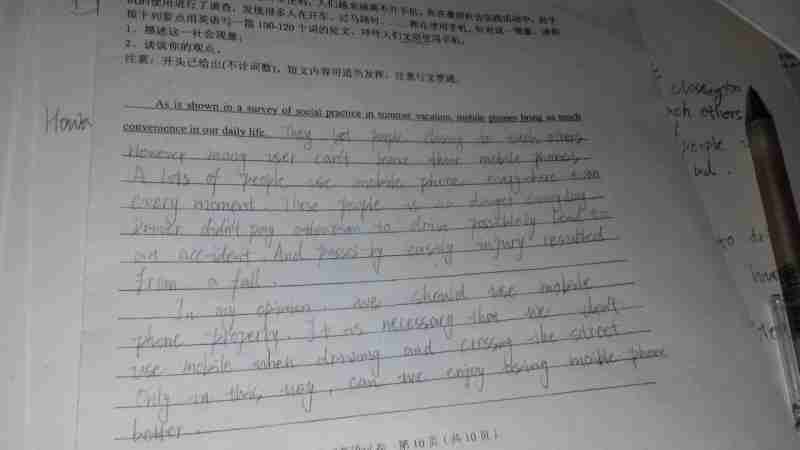 识的使用进行了调查，发现很多人在开车、过马路时、……都在使用手机。针对这一现象，请你
按下列要点用英语写一篇100-120个词的短文，呼吁人们文明使用手机。
1、描述这一社会现象；
2、谈谈你的观点。
注意：开头已给出(不计词数)，短文内容可适当发挥，注意行文连贯。
As is shown in a survey of social practice in summer vacation, mobile phones bring us much
convenience in our daily life. They let people closing to each others.
However many user can't leave their mobile phones.
A lots of people use mobile phone everywhere even
every moment. These people is in danger
Driver didn't pay attention to drive possibly lead to
an accident. And passer-by easily injury resulted
from a fall.
In my opinion, we should use mobile
phone properly. It is necessary that we don't
use mobile when driving and crossing the street
Only in this way, can we enjoy using mobile phone
better.
第10页（共10页）
closing to
each others
people
but.
to